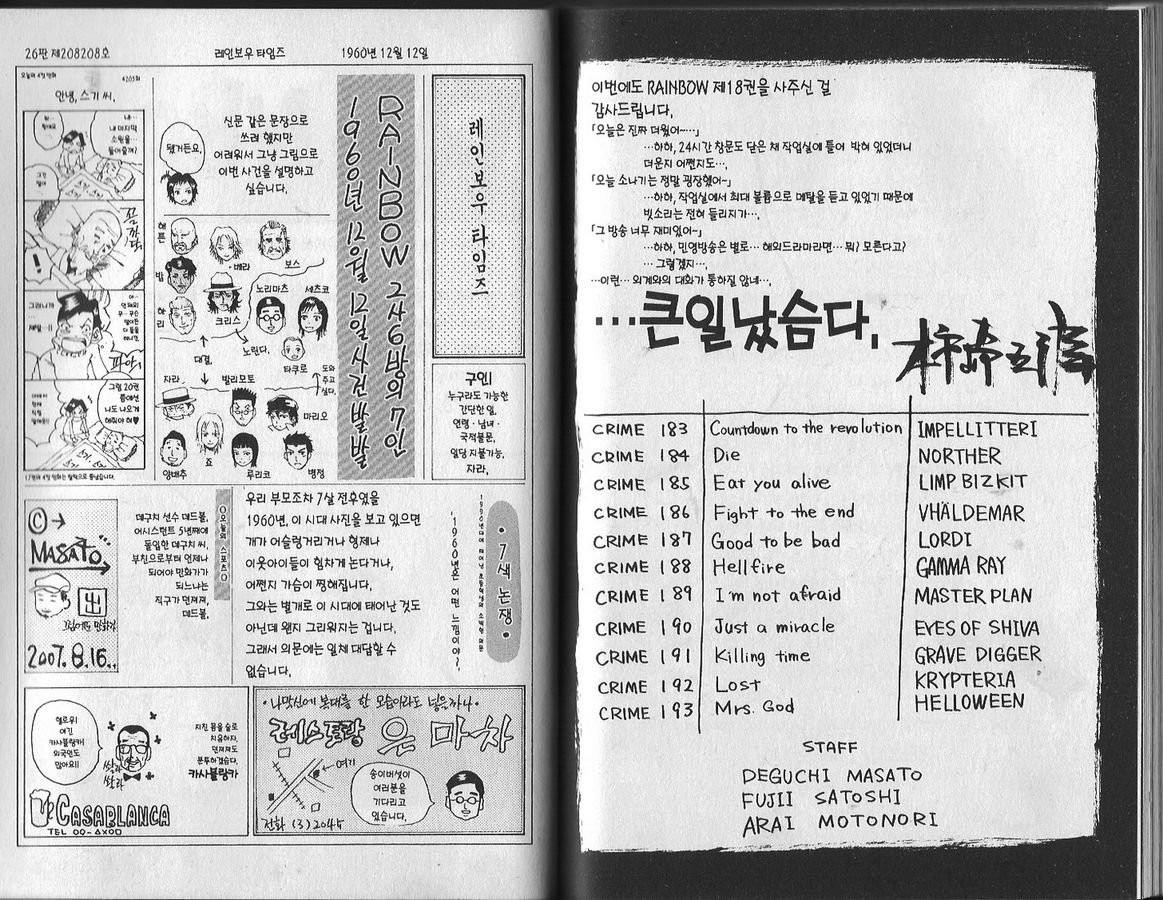 26판 제208208호
레인보우 타임즈
1960년 12월 12일
오늘의 4컷 만화
4203화
안녕, 스기 씨.
내…
내 마지막
소원을…
들어줄게!
꼼짝마
!
그러니까
제발…!!
파아
그럼 20권
쯤에선
나도 나오게
해줘야 해♥
됐거든요.
신문 같은 문장으로
쓰려 했지만
어려워서 그냥 그림으로
이번 사건을 설명하고
싶습니다.
헤븐
베라
보스
밤
노리마츠
세츠코
하리
크리스
대결.
노린다.
타쿠로
도와
주고
싶다.
자라
발리모토
마리오
양배추
죠
루리코
병정
RAINBOW 2사6방의 7인
1960년 12월 12일 사건발발
레인보우 타임즈
구인!
누구라도 가능한
간단한 일.
연령·남녀·
국적불문.
일당 지불가능.
자라.
©→
MASATO
出
2007.8.16..
데구치 선수 데드볼.
어시스턴트 5년째에
돌입한 데구치 씨.
부친으로부터 언제나
되어야 만화가가
되느냐는
직구가 던져져,
데드볼.
오늘의 스포츠
우리 부모조차 7살 전후였을
1960년. 이 시대 사진을 보고 있으면
개가 어슬렁거리거나 형제나
이웃아이들이 힘차게 논다거나,
어쩐지 가슴이 찡해집니다.
그와는 별개로 이 시대에 태어난 것도
아닌데 왠지 그리워지는 겁니다.
그래서 의문에는 일체 대답할 수
없습니다.
'1960년은 어떤 느낌이야~'
•7색 논쟁•
헬로우!
여긴
카사블랑카!
외국인도
많아요!!
쌀라
쌀라
지친 몸을 술로
치유하자.
던져져도
분투하겠습니다.
카사블랑카
CASABLANCA
TEL 00-△X00
·나막신에 붕대를 한 모습이라도 넣을까나·
레스토랑 은마차
여기
송이버섯이
여러분을
기다리고
있습니다.
전화 (3) 2045
이번에도 RAINBOW 제18권을 사주신 걸
감사드립니다.
「오늘은 진짜 더웠어~…」
…하하, 24시간 창문도 닫은 채 작업실에 틀어 박혀 있었더니
더운지 어쩐지도….
「오늘 소나기는 정말 굉장했어~」
…하하, 작업실에서 최대 볼륨으로 메탈을 듣고 있었기 때문에
빗소리는 전혀 들리지가….
「그 방송 너무 재미있어~」
…하하, 민영방송은 별로… 해외드라마라면… 뭐? 모른다고?
… 그렇겠지….
…이런… 외계와의 대화가 통하질 않네….
…큰일 났슴다.
CRIME 183 Countdown to the revolution IMPELLITTERI
CRIME 184 Die NORTHER
CRIME 185 Eat you alive LIMP BIZKIT
CRIME 186 Fight to the end VHÄLDEMAR
CRIME 187 Good to be bad LORDI
CRIME 188 Hellfire GAMMA RAY
CRIME 189 I'm not afraid MASTER PLAN
CRIME 190 Just a miracle EYES OF SHIVA
CRIME 191 Killing time GRAVE DIGGER
CRIME 192 Lost KRYPTERIA
CRIME 193 Mrs. God HELLOWEEN
STAFF
DEGUCHI MASATO
FUJII SATOSHI
ARAI MOTONORI